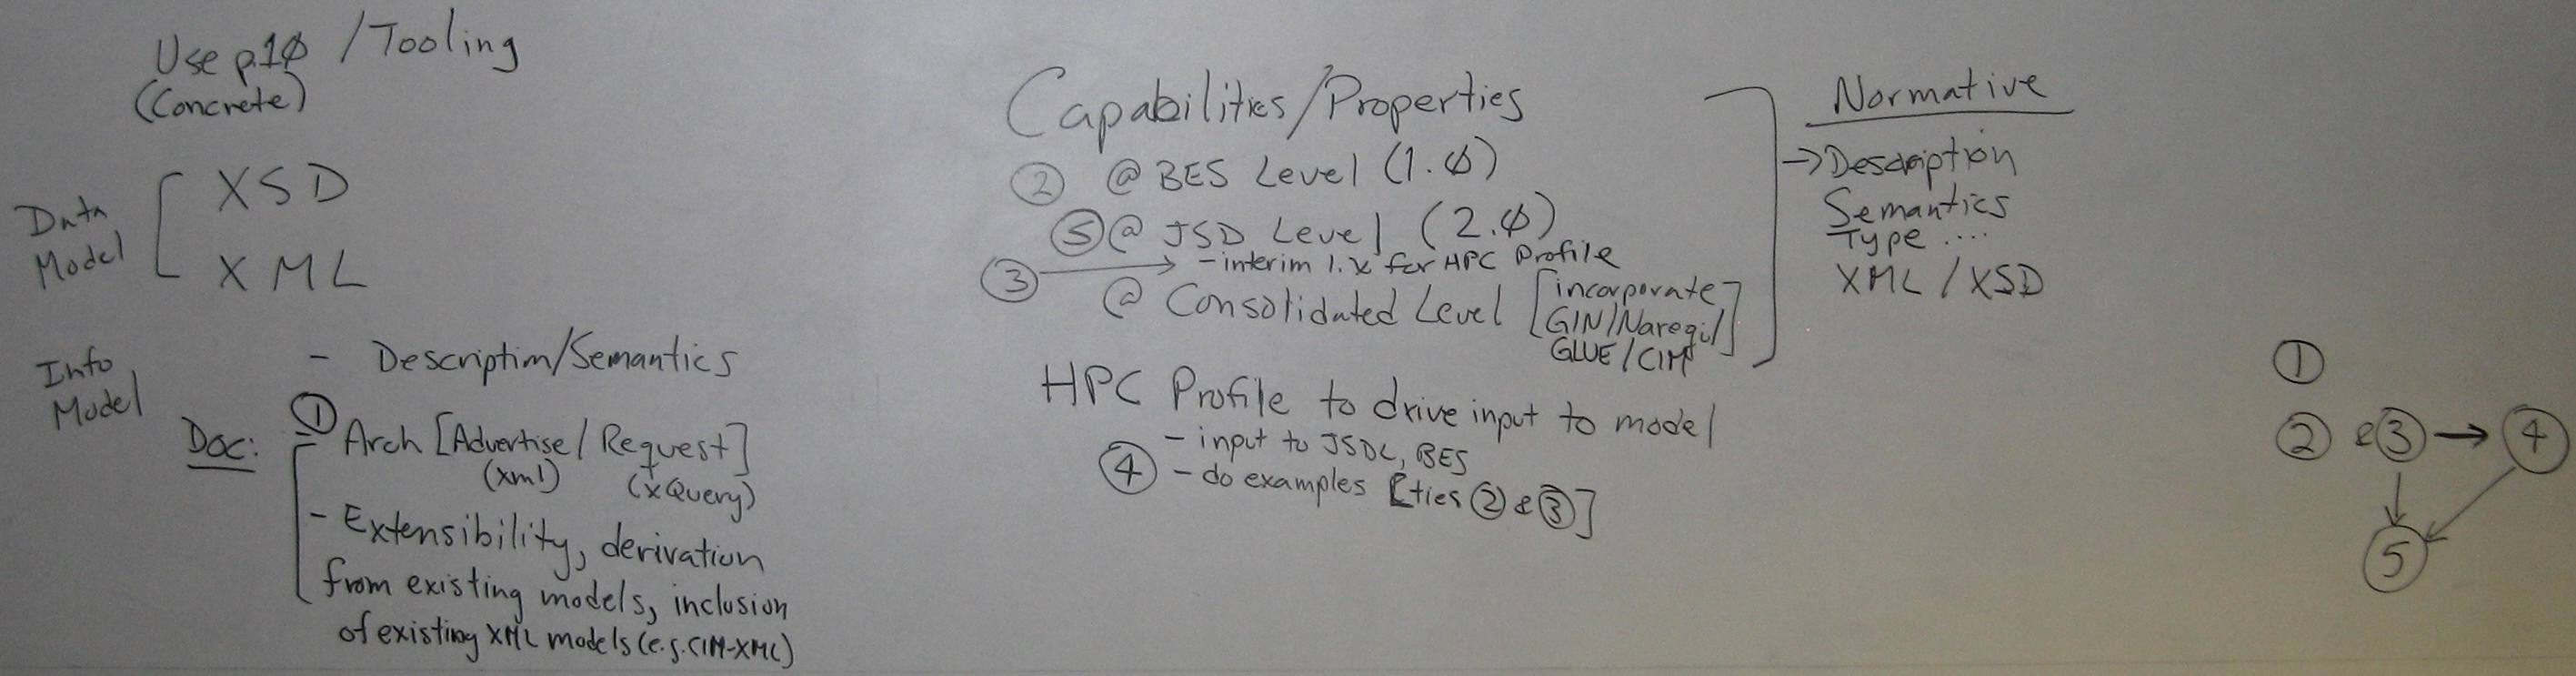 Use p1Ø /Tooling
(Concrete)
Data Model
XSD
XML
Info Model
- Description/Semantics
Doc:
① - Arch [Advertise/Request]
(xml) (xQuery)
- Extensibility, derivation
from existing models, inclusion
of existing XML models (e.g. CIM-XML)
Capabilities/Properties
② @ BES Level (1.Ø)
⑤ @ JSD Level (2.Ø)
③ → - interim 1.x for HPC Profile
@ Consolidated Level [incorporate
GIN/Naregi/]
GLUE/CIM
HPC Profile to drive input to model
- input to JSDL, BES
④ - do examples [ties ② & ③]
Normative
→ Description
Semantics
Type ....
XML / XSD
①
② & ③ → ④
⑤